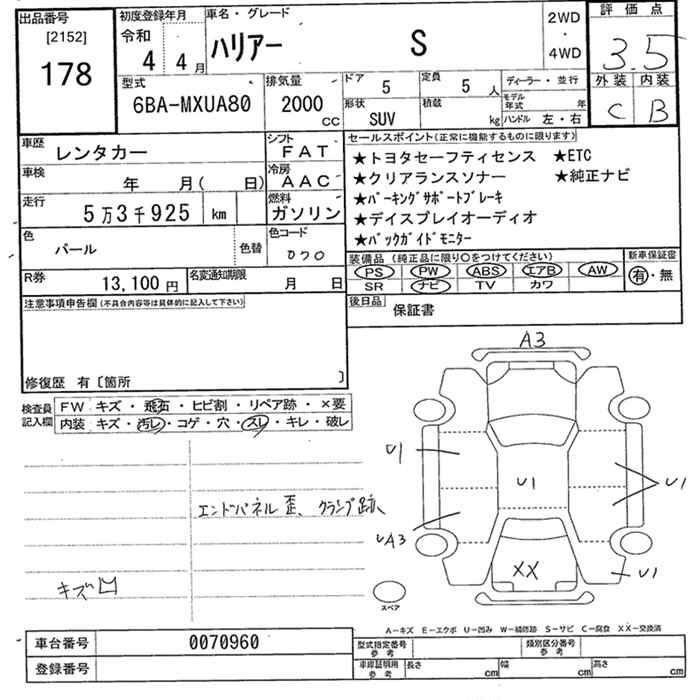 出品番号
[2152]
178
初度登録年月
令和
4 4月
車名・グレード
ハリアー S
2WD
・
4WD
評価点
3.5
外装 内装
C B
型式
6BA-MXUA80
排気量
2000 cc
ドア 5
定員 5 人
形状 SUV
積載 kg
ディーラー・並行
モデル年式 年
ハンドル 左・右
車歴
レンタカー
車検
年 月( 日)
走行
5万3千925 km
色
パール
色替
シフト
FAT
冷房
AAC
燃料
ガソリン
色コード
070
セールスポイント(正常に機能するものに限ります)
★トヨタセーフティセンス ★ETC
★クリアランスソナー ★純正ナビ
★パーキングサポートブレーキ
★ディスプレイオーディオ
★バックガイドモニター
装備品(純正品に限り○をつけてください)
PS PW ABS エアB AW
SR ナビ TV カワ
新車保証書
有・無
後日品
保証書
R券
13,100 円
名変通知期限
月 日
注意事項申告欄(不具合内容等は具体的に記入して下さい)
修復歴 有〔箇所 〕
検査員記入欄
FW キズ・飛石・ヒビ割・リペア跡・×要
内装 キズ・汚レ・コゲ・穴・スレ・キレ・破レ
エンドパネル歪、クランプ跡、
キズ凹
A3
U1
U1
U1
UA3
XX
U1
スペア
A-キズ E-エクボ U-凹み W-補修跡 S-サビ C-腐食 XX-交換済
車台番号
0070960
登録番号
型式指定番号
参考
類別区分番号
参考
車庫証明用
参考
長さ cm
幅 cm
高さ cm